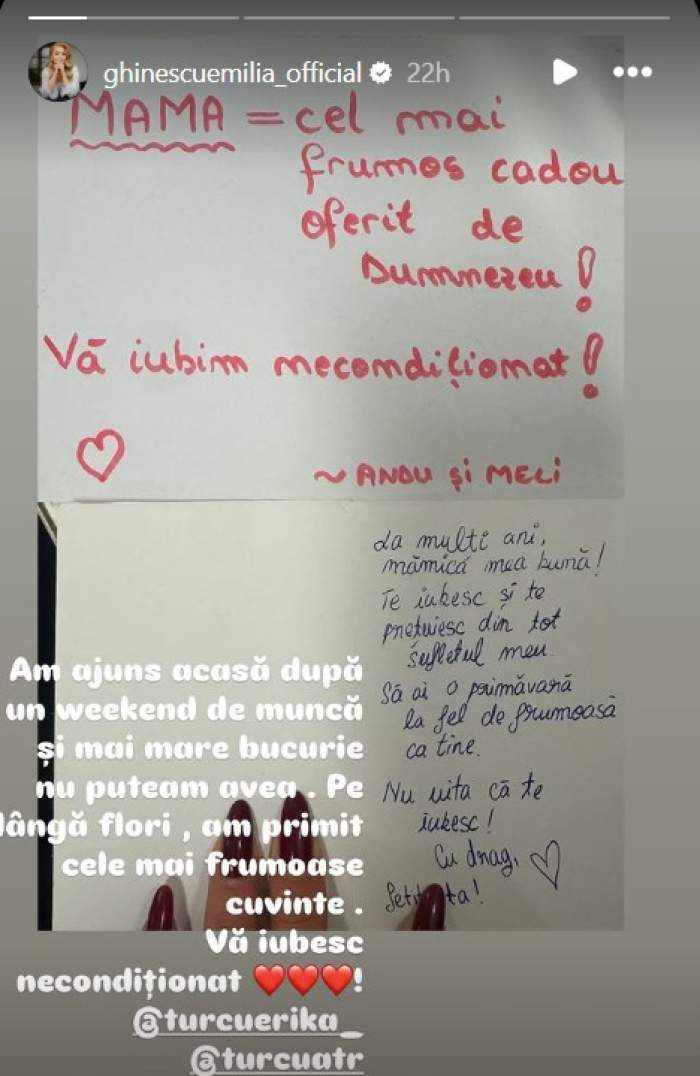 ghinescuemilia_official 22h
MAMA = cel mai
frumos cadou
oferit de
Dumnezeu!
Vă iubim necondiționat!
~ ANDU și MELI
La multi ani,
mămica mea bună!
Te iubesc și te
prețuiesc din tot
sufletul meu.
Să ai o primăvară
la fel de frumoasă
ca tine.
Nu uita că te
iubesc!
Cu drag,
Am ajuns acasă după
un weekend de muncă
și mai mare bucurie
nu puteam avea . Pe
lângă flori , am primit
cele mai frumoase
cuvinte .
Vă iubesc
necondiționat ❤️❤️❤️!
@turcuerika_
@turcuatr